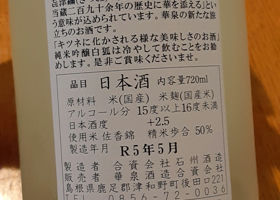 当蔵二百九十余年の歴史に華を添える」とい
う意味が込められています。華泉の新たな旅
立ちのお酒です。
「キツネに化かされる様な美味しさのお酒」
純米吟醸白狐は冷やして飲むことをお勧
めしますが、御座いません。
品目 日本酒 内容量720ml
原材料 米(国産) 米麹(国産)
アルコール分 15度以上16度未満
日本酒度 +2.5
使用米 佐香錦 精米歩合 50%
製造年月 R5年5月
製造者 合資会社石州酒造
販売者 華泉酒造合資会社
島根県鹿足郡津和野町後田ロ221
TEL 0856-72-0036